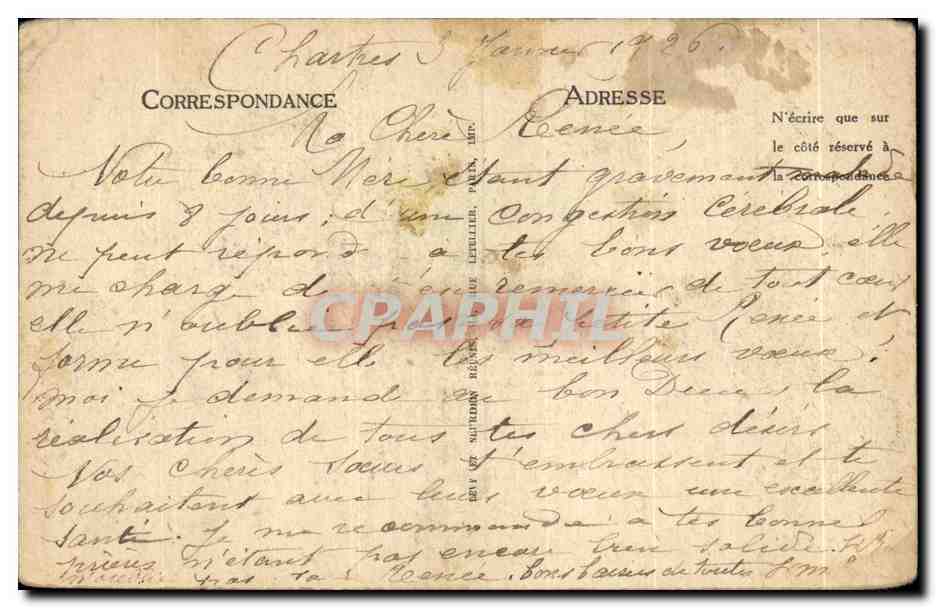 Chartres 3 Janvier 1926.
CORRESPONDANCE
ADRESSE
N'écrire que sur
le côté réservé à
la correspondance
Ma Chère Renée
Notre bonne Mère étant gravement malade
depuis 8 jours, d'une congestion cérébrale,
ne peut répond à tes bons vœux, elle
me charge de t'en remercier de tout cœur
elle n'oublie pas sa petite Renée et
forme pour elle les meilleurs vœux.
moi je demande au bon Dieu la
réalisation de tous tes chers désirs
Nos chères sœurs t'embrassent et te
souhaitent avec leurs vœux une excellente
santé. Je me recommande à tes bonnes
prières n'étant pas encore bien solide.
pas la Renée. bons baisers de toutes
LEVY ET NEURDEIN RÉUNIS, RUE LETELLIER, PARIS, IMP.
CPAPHIL